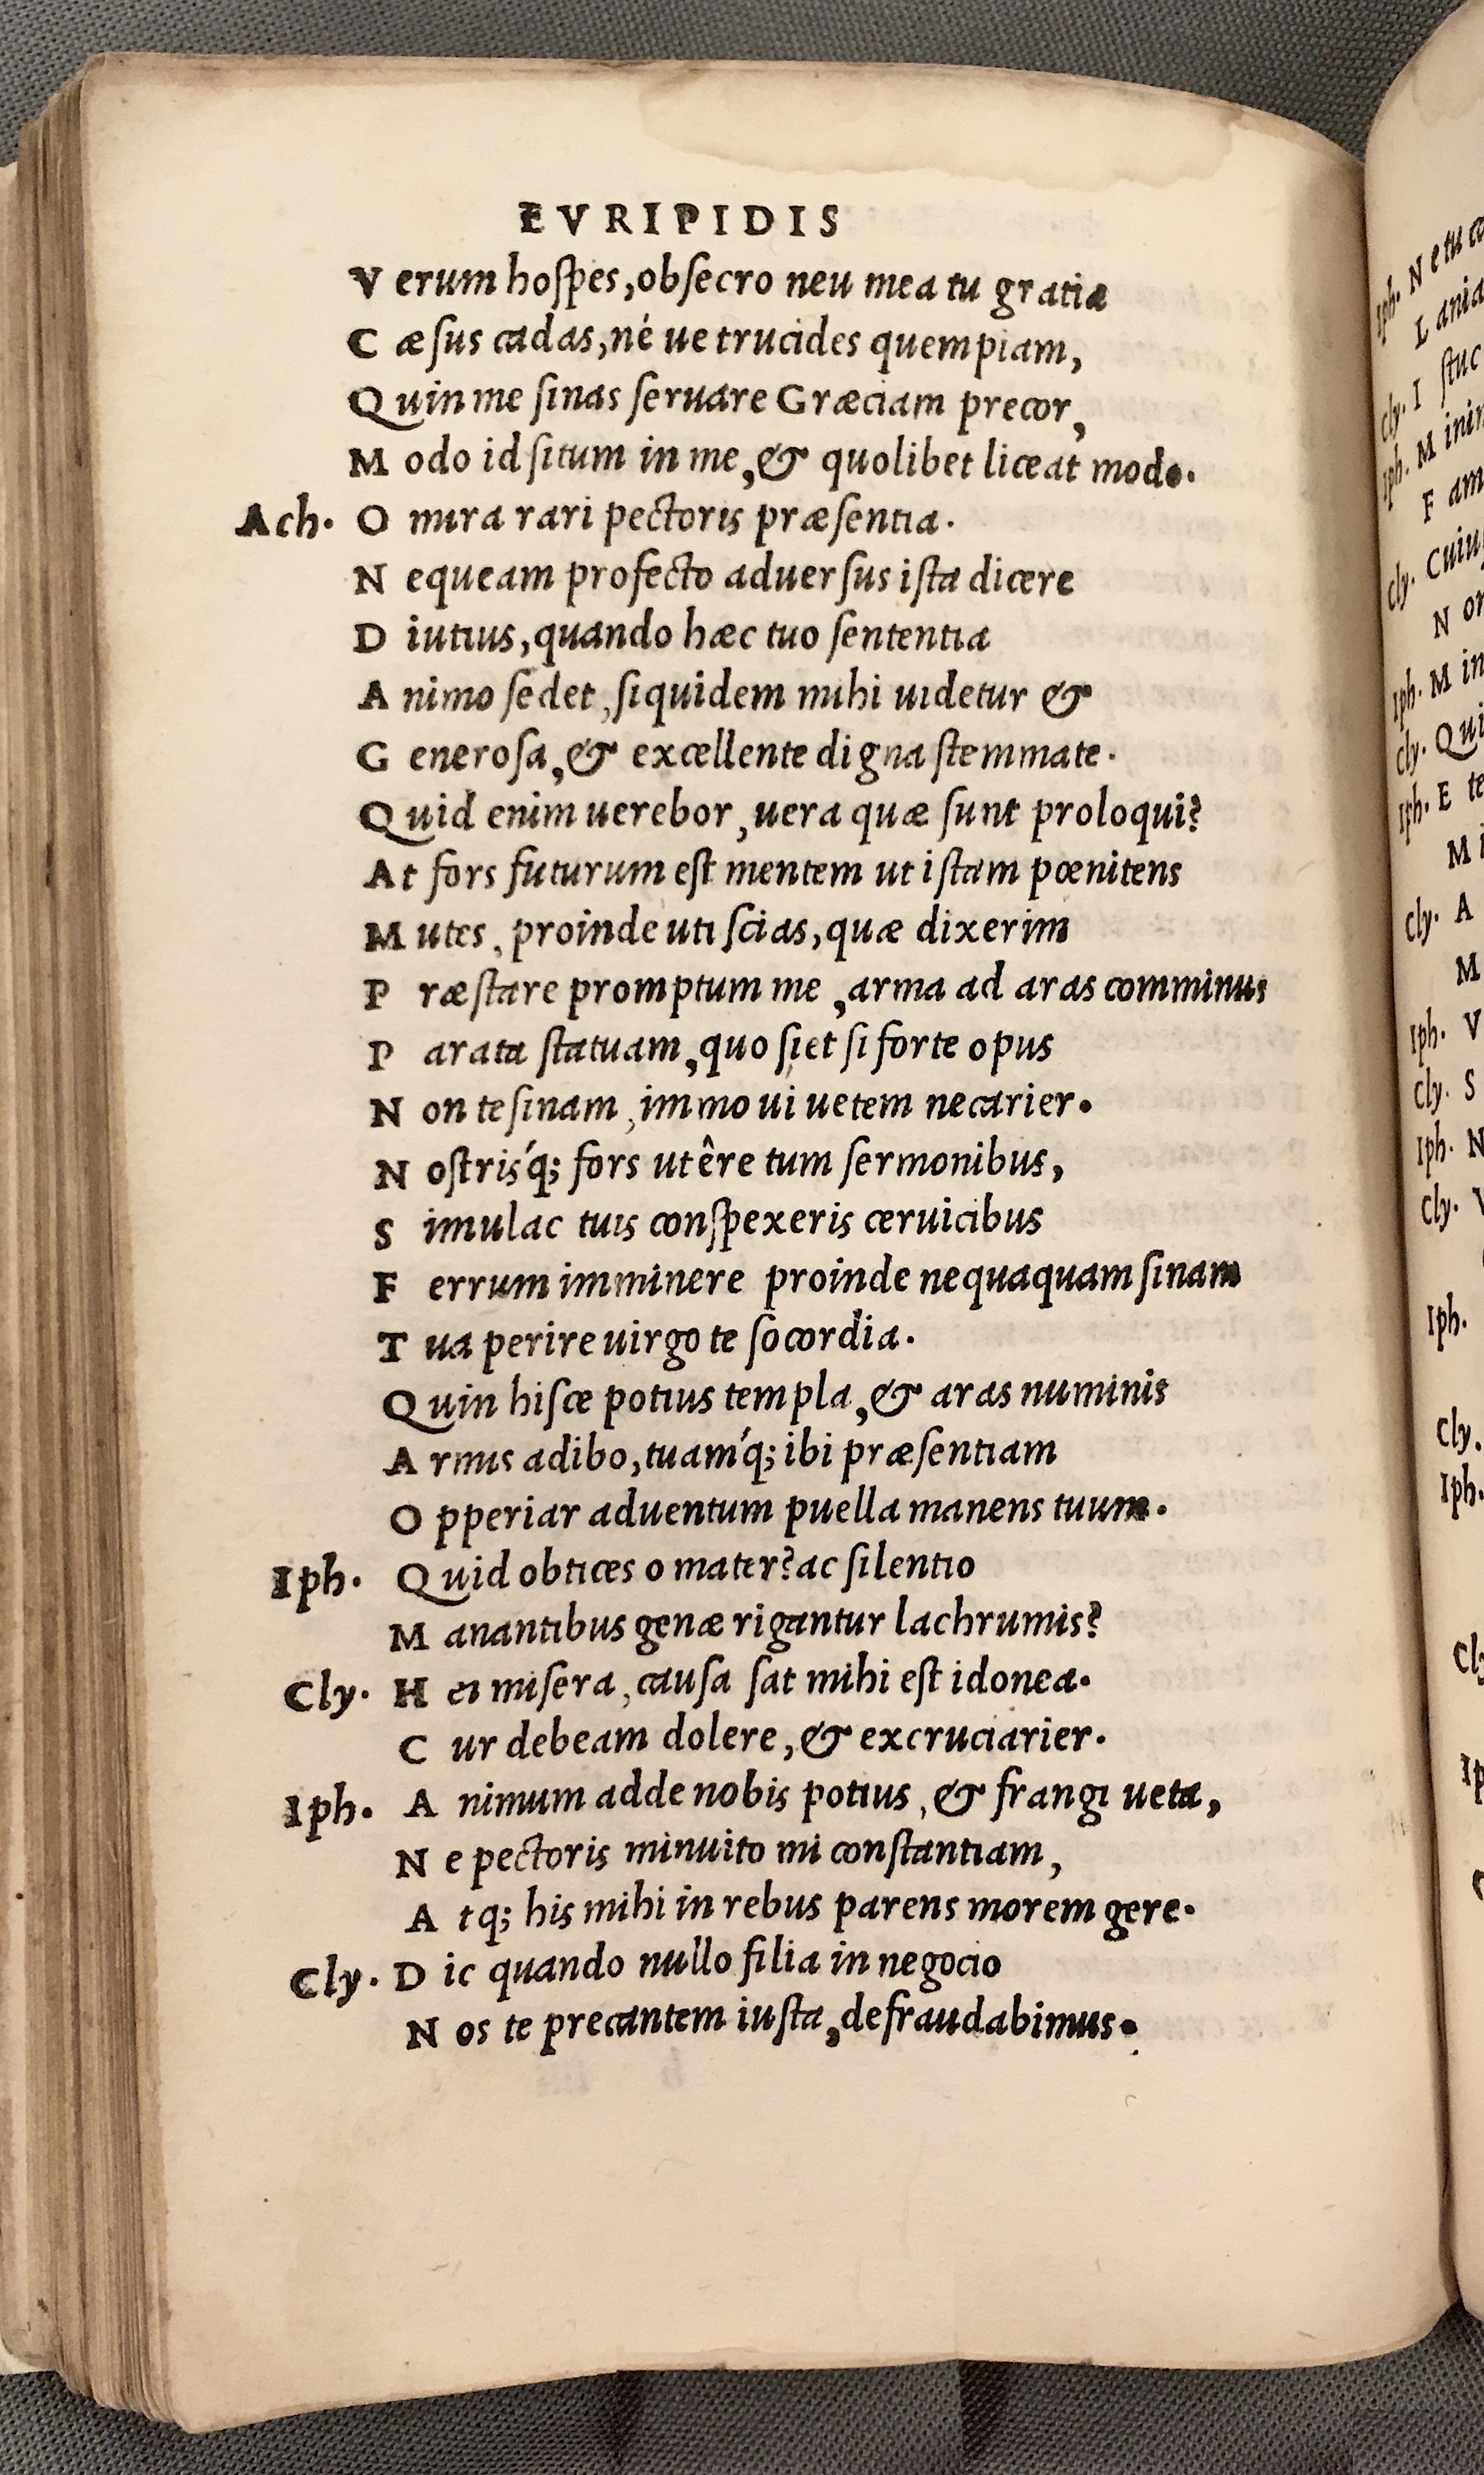 EVRIPIDIS
V erum hoſpes, obſecro neu mea tu gratia
C æſus cadas, né ue trucides quempiam,
Q uin me ſinas ſeruare Græciam precor,
M odo id ſitum in me, & quolibet liceat modo.
Ach. O mira rari pectoris præſentia.
N equeam profecto aduerſus iſta dicere
D iutius, quando hæc tuo ſententia
A nimo ſedet, ſiquidem mihi uidetur &
G eneroſa, & excellente digna ſtemmate.
Q uid enim uerebor, uera quæ ſunt proloqui?
At fors futurum eſt mentem ut iſtam pœnitens
M utes, proinde uti ſcias, quæ dixerim
P ræſtare promptum me, arma ad aras comminus
P arata ſtatuam, quo ſiet ſi forte opus
N on te ſinam, immo ui uetem necarier.
N oſtris'q; fors utêre tum ſermonibus,
S imulac tuis conſpexeris ceruicibus
F errum imminere proinde nequaquam ſinam
T ua perire uirgo te ſocordia.
Q uin hiſce potius templa, & aras numinis
A rmis adibo, tuam'q; ibi præſentiam
O pperiar aduentum puella manens tuum.
Iph. Q uid obtices o mater? ac ſilentio
M anantibus genæ rigantur lachrumis?
Cly. H ei miſera, cauſa ſat mihi eſt idonea.
C ur debeam dolere, & excruciarier.
Iph. A nimum adde nobis potius, & frangi ueta,
N e pectoris minuito mi conſtantiam,
A tq; his mihi in rebus parens morem gere.
Cly. D ic quando nullo filia in negocio
N os te precantem iuſta, defraudabimus.
Iph. N e tu
L ania
Cly. I ſtuc
Iph. M
F am
Cly.
N
Iph. M
Cly. Qui
Iph. E te
M
Cly. A
M
Iph. V
Cly. S
Iph. N
Cly.
Iph.
Cly.
Iph.